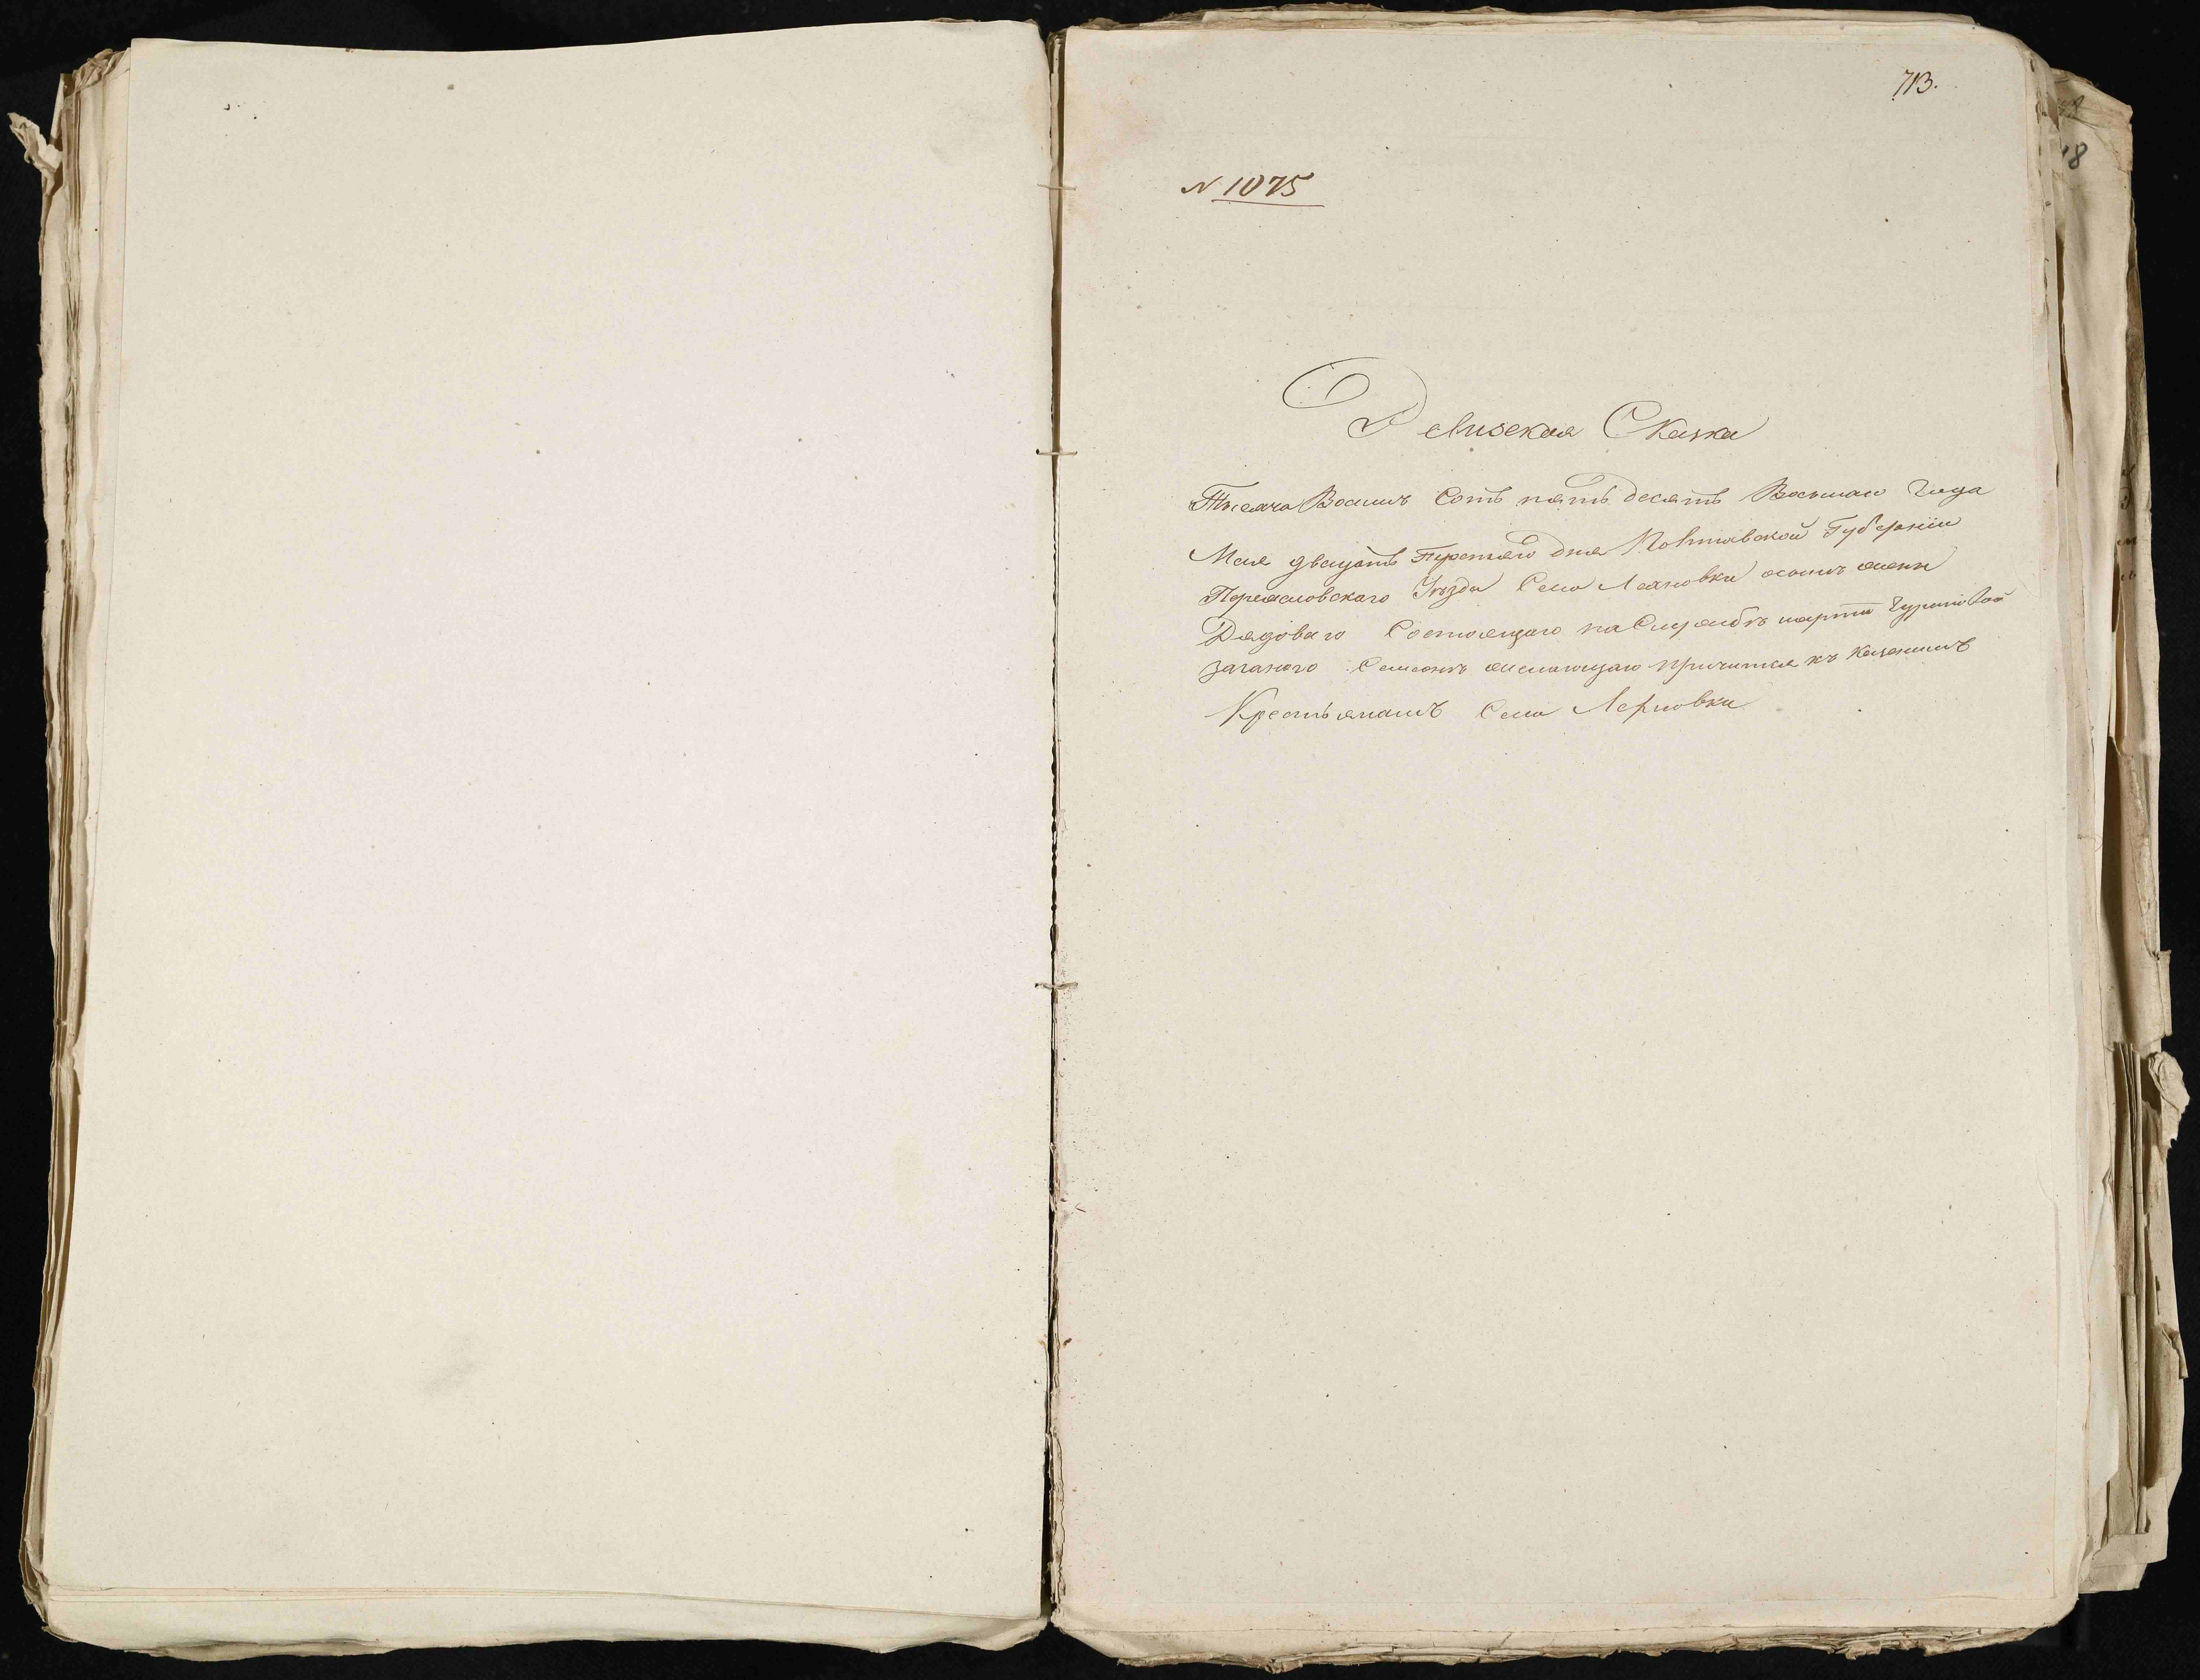 713.
N 1075
Ревизская Сказка
Тысяча Восимъ Сотъ пятъ десятъ Восьмаго Года
Мая двацатъ Третяго дня Полтавской Губерніи
Переясловского Уезда Села
Рядоваго Состоящаго на Службѣ
Семсонъ причится къ Казенимъ
Крестьянамъ Села